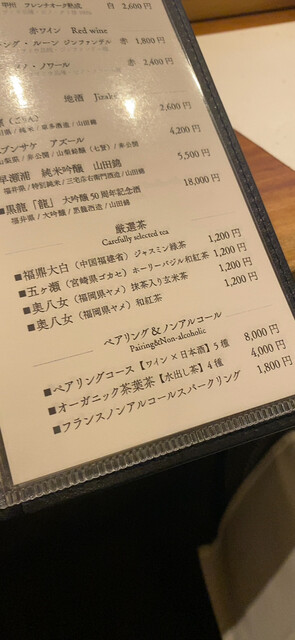 甲州 フレンチオーク熟成 白 2,600円
赤ワイン Red wine
ング・ルーン ジンファンデル 赤 1,800円
ノ・ノワール 赤 2,400円
地酒 Jizake
2,600円
ブンサケ アズール 4,200円
山梨県 / 非公開 / 山梨銘醸(七賢) / 非公開
早瀬浦 純米吟醸 山田錦 5,500円
福井県 / 特別純米 / 三宅彦右衛門酒造 / 山田錦
■黒龍「龍」 大吟醸 50周年記念酒 18,000円
福井県 / 大吟醸 / 黒龍酒造 / 山田錦
厳選茶
Carefully selected tea
■福鼎大白(中国福建省)ジャスミン緑茶 1,200円
■五ヶ瀬(宮崎県ゴカセ)ホーリーバジル和紅茶 1,200円
■奥八女(福岡県ヤメ)抹茶入り玄米茶 1,200円
■奥八女(福岡県ヤメ)和紅茶 1,200円
ペアリング&ノンアルコール
Pairing&Non-alcoholic
■ペアリングコース【ワイン×日本酒】5種 8,000円
■オーガニック茶葉茶【水出し茶】4種 4,000円
■フランスノンアルコールスパークリング 1,800円